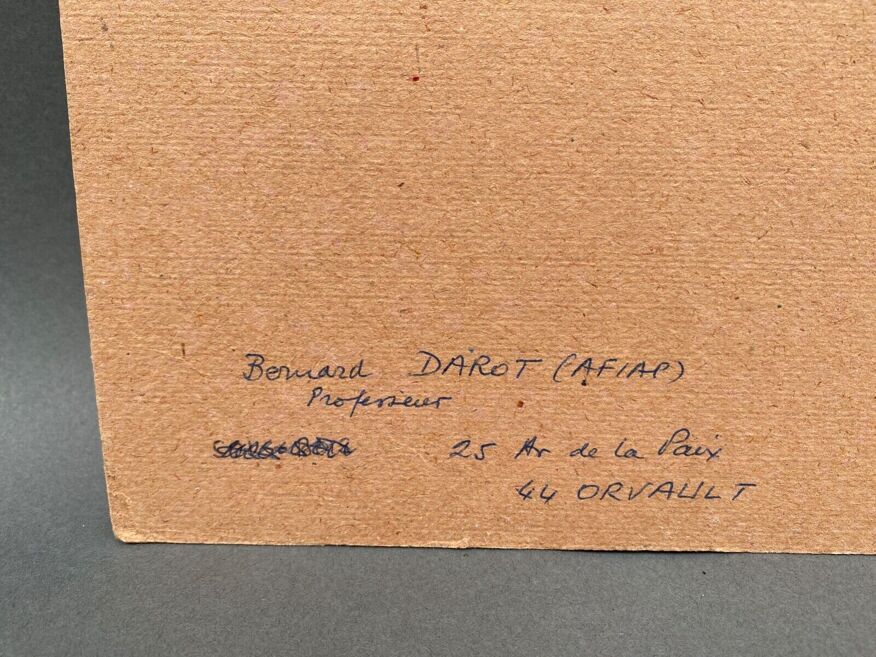 Bernard DAROT (AFIAP)
Professeur
25 Av de la Paix
44 ORVAULT